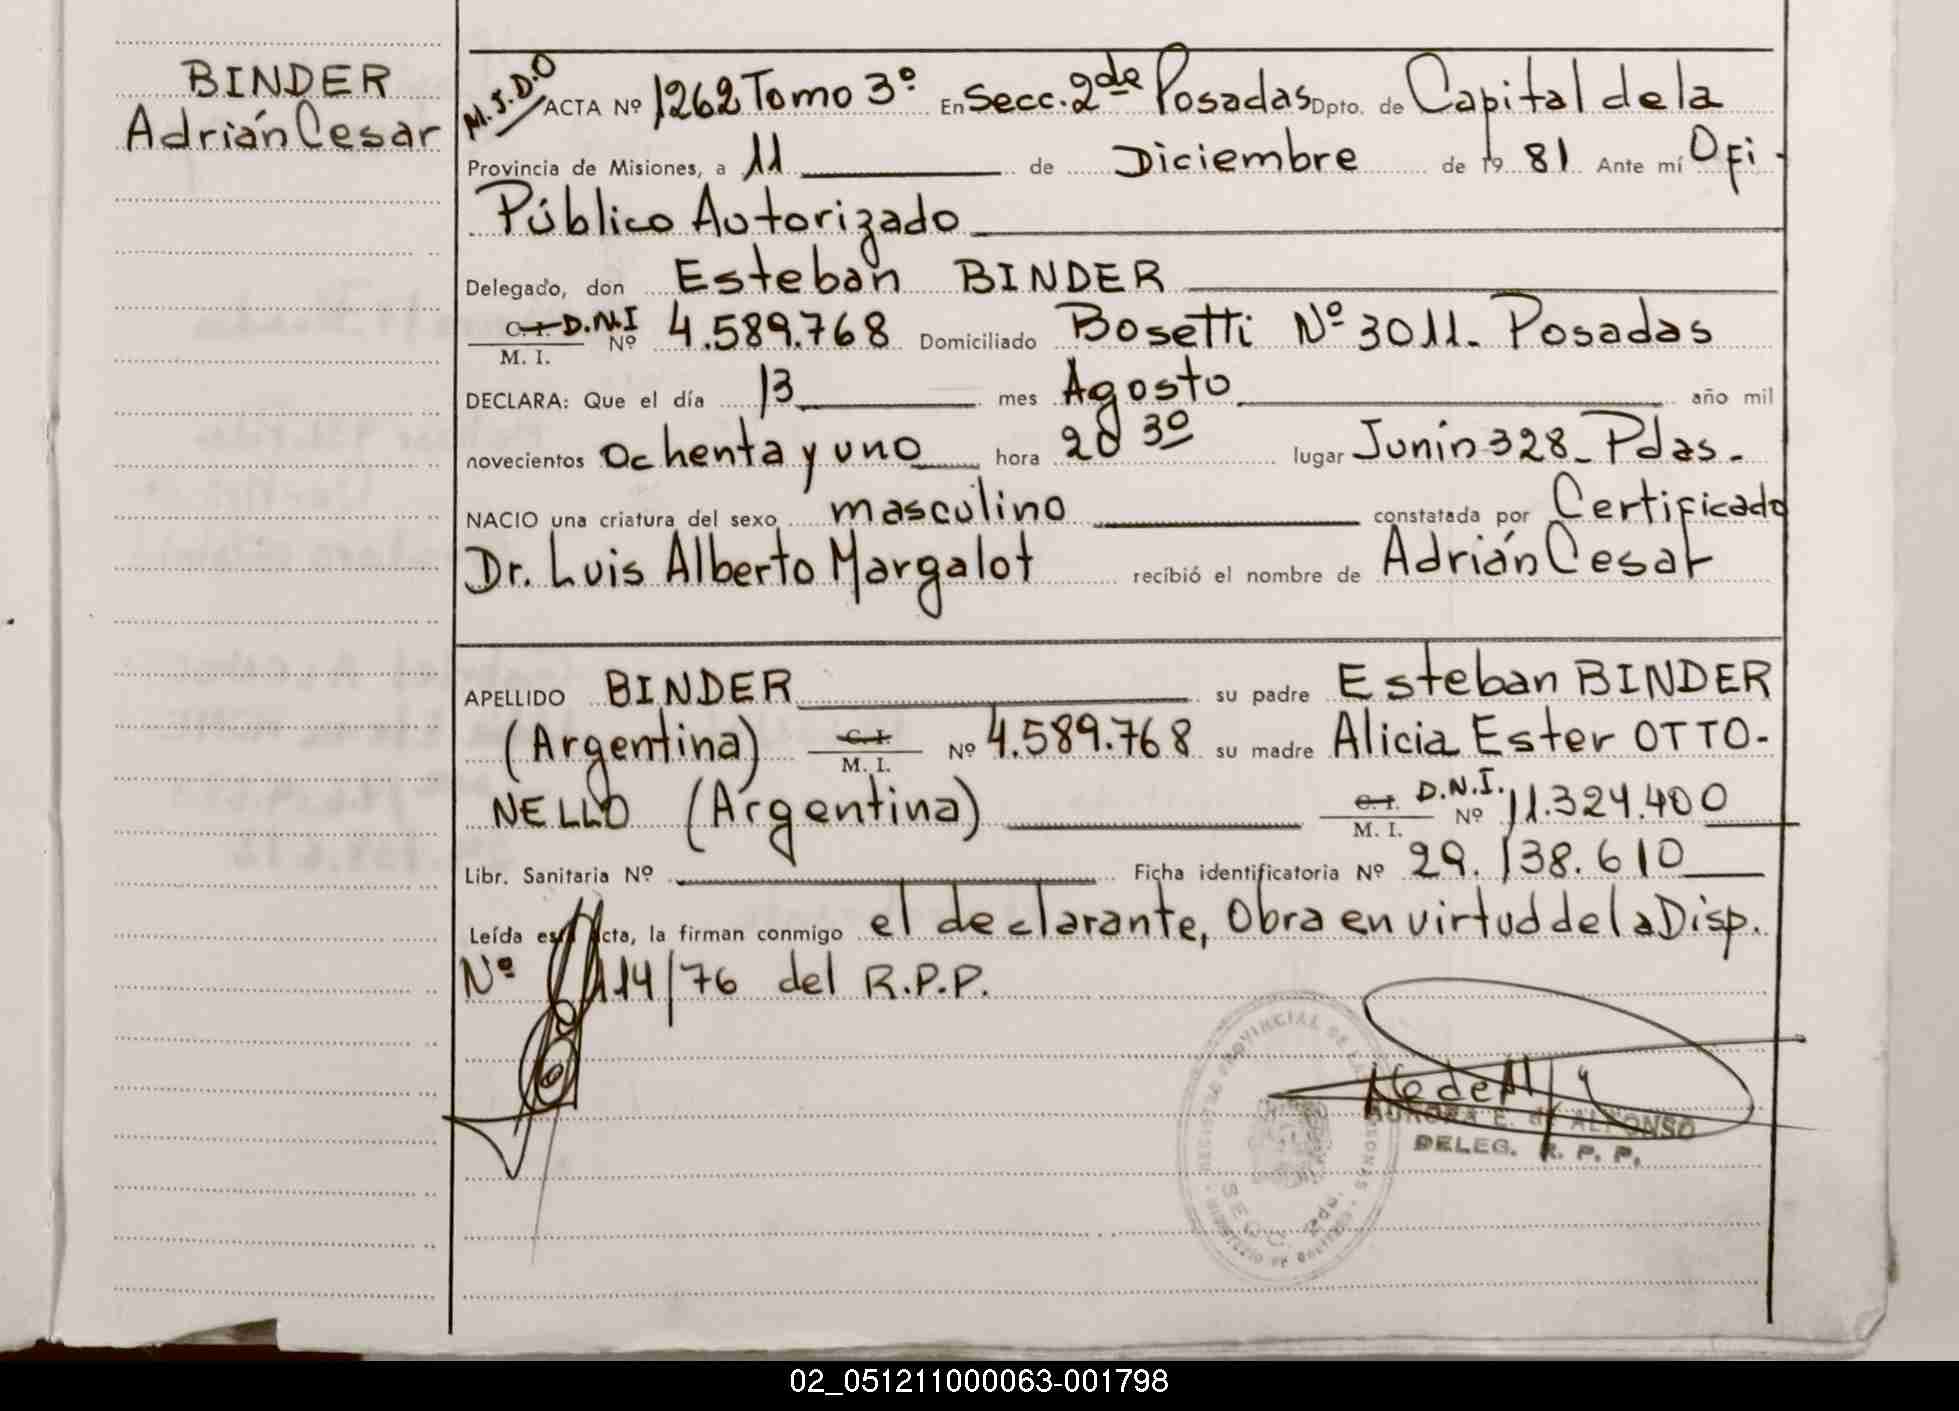 BINDER
Adrián Cesar
M.J.D.O
ACTA Nº 1262 Tomo 3º En Secc. 2da Posadas Dpto. de Capital de la
Provincia de Misiones, a 11 de Diciembre de 1981 Ante mí Ofi.
Público Autorizado
Delegado, don Esteban BINDER
C. I. D.N.I Nº 4.589.768 Domiciliado Bosetti Nº 3011. Posadas
M. I.
DECLARA: Que el día 13 mes Agosto año mil
novecientos Ochenta y uno hora 20 30 lugar Junín 328_ Pdas.
NACIO una criatura del sexo masculino constatada por Certificado
Dr. Luis Alberto Margalot recibió el nombre de Adrián Cesar
APELLIDO BINDER su padre Esteban BINDER
(Argentina) C. I. Nº 4.589.768 su madre Alicia Ester OTTO-
M. I.
NELLO (Argentina) C. I. D.N.I. Nº 11.324.400
M. I.
Libr. Sanitaria Nº Ficha identificatoria Nº 29.138.610
Leída esta Acta, la firman conmigo el declarante, Obra en virtud de la Disp.
Nº 114/76 del R.P.P.
AURORA E. de ALFONSO
DELEG. R. P. P.
SECC. 2da.
02_051211000063-001798